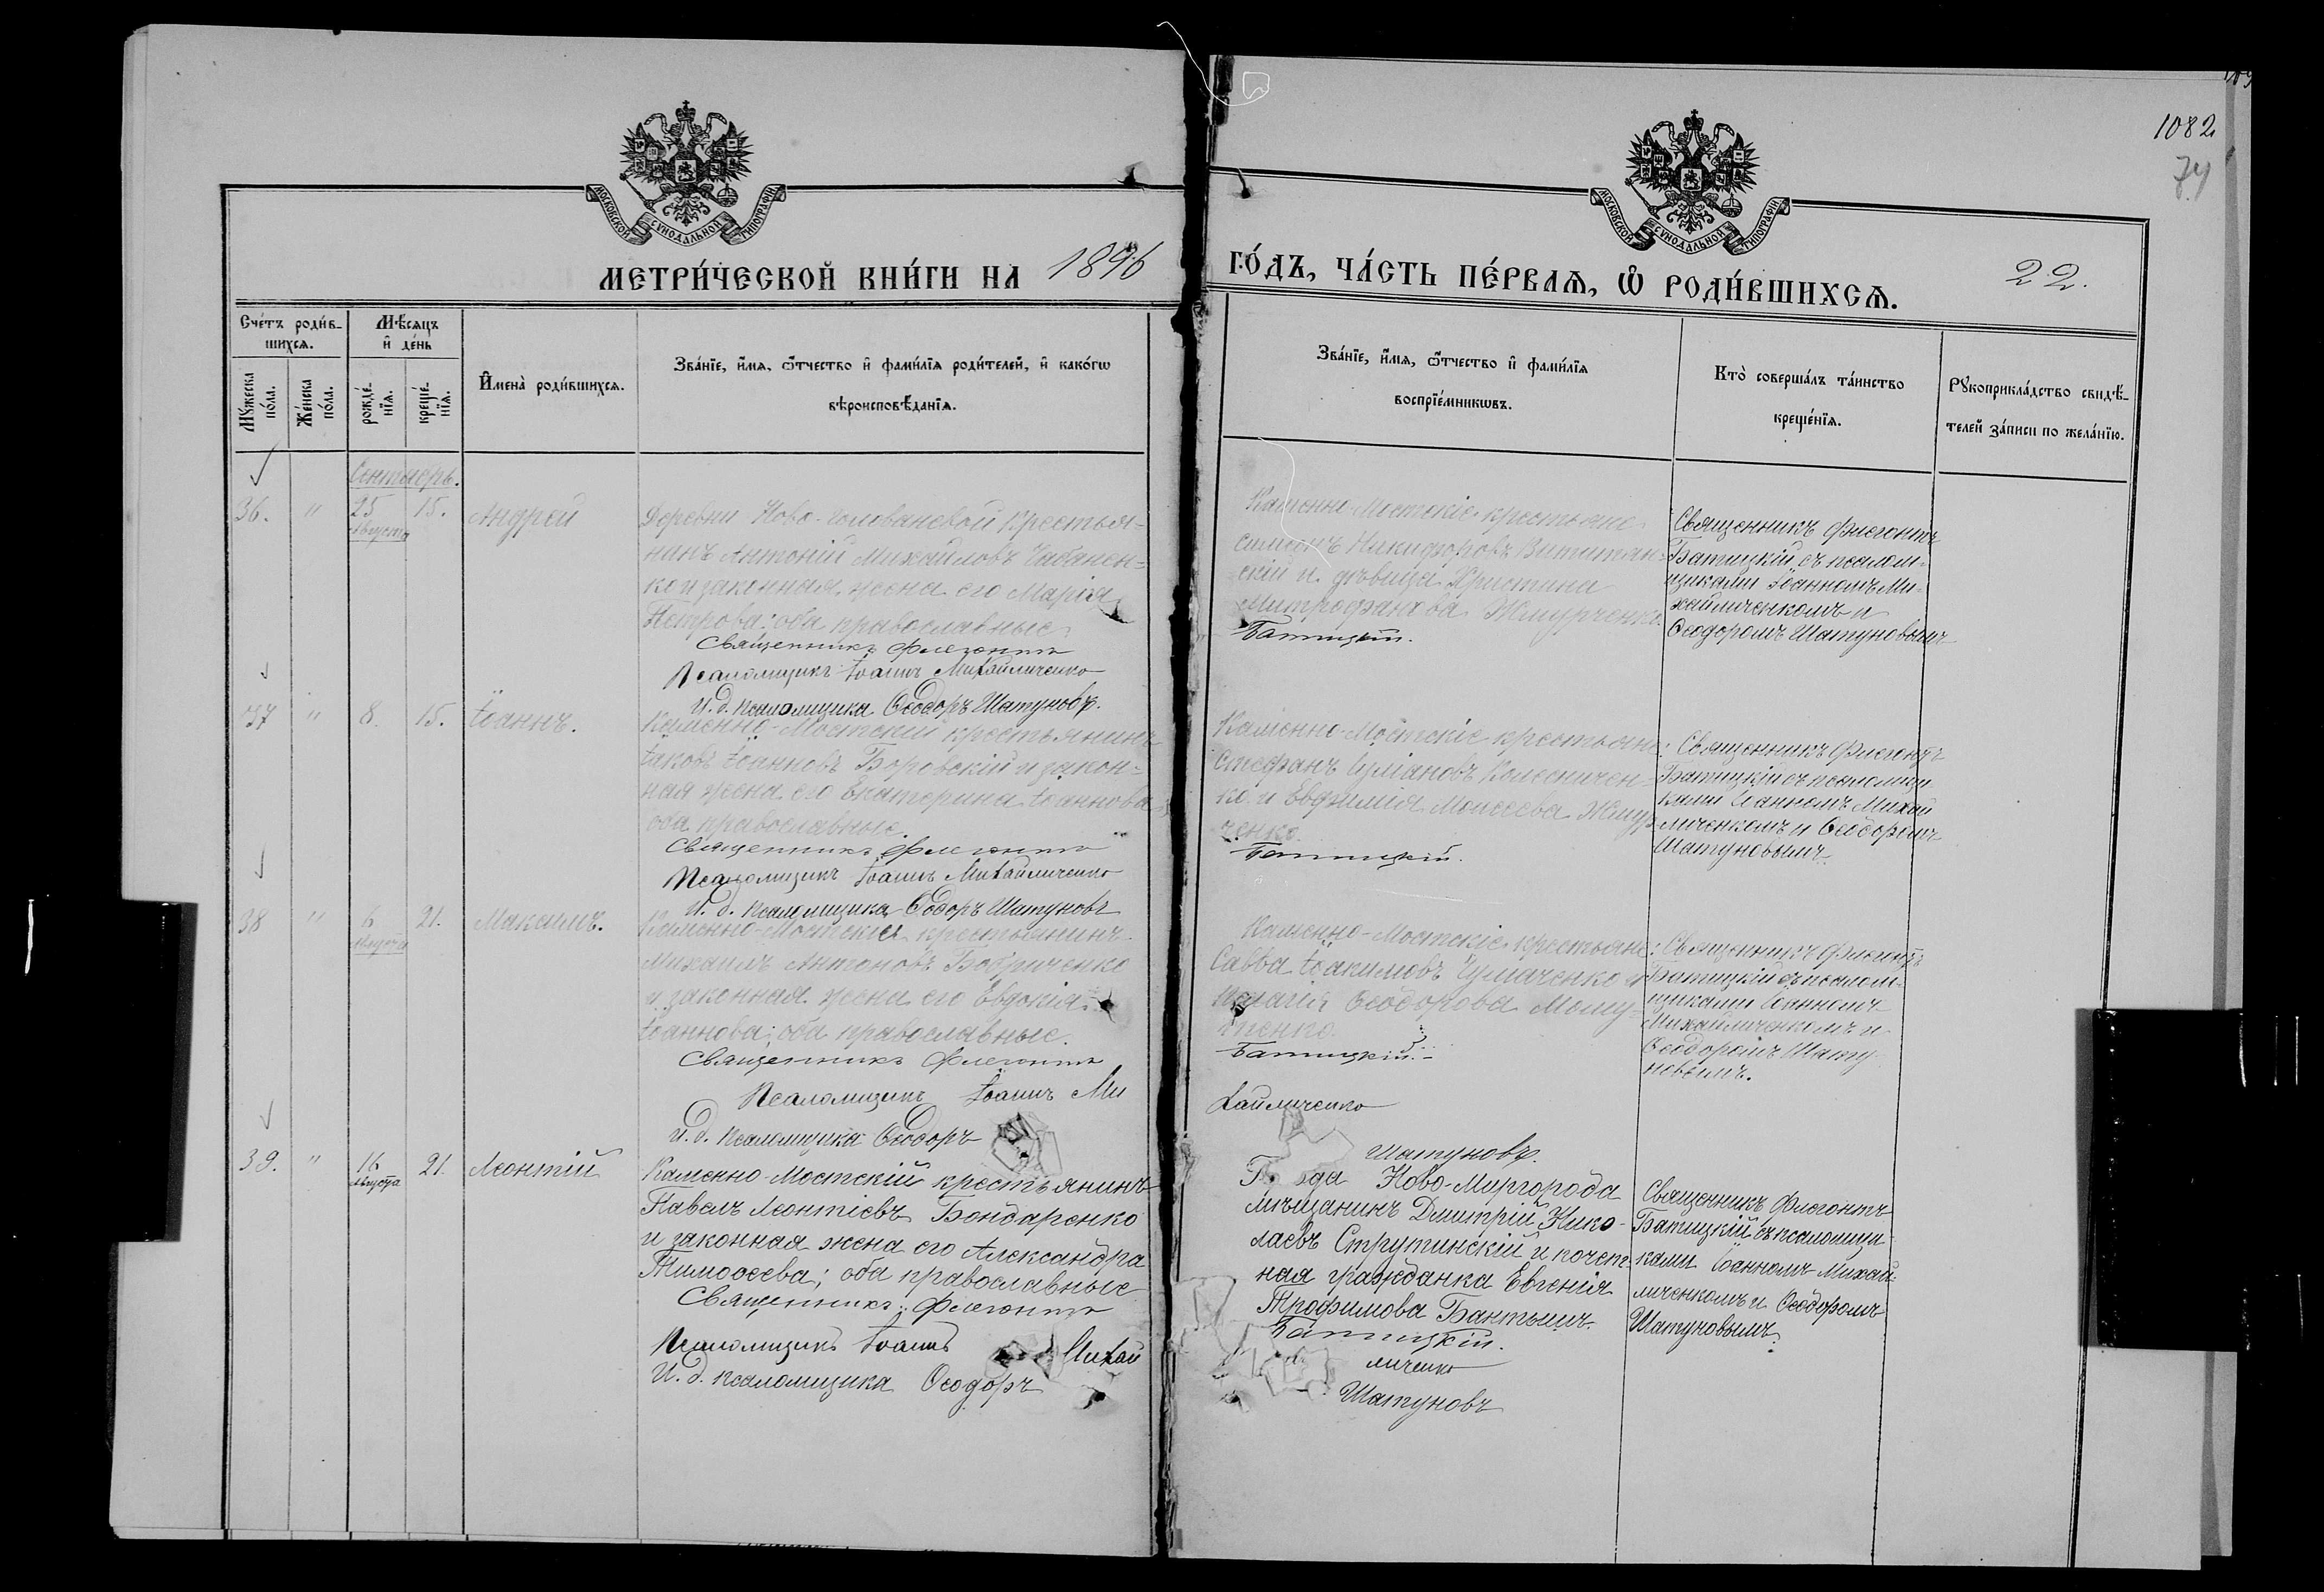 1082
74
МОСКОВСКОЙ СѴНОДАЛЬНОЙ ТИПОГРАФІИ
МОСКОВСКОЙ СѴНОДАЛЬНОЙ ТИПОГРАФІИ
МЕТРИ́ЧЕСКОЙ КНИ́ГИ НА 1896 ГО́ДЪ, ЧА́СТЬ ПЕ́РВАѦ, Ѡ РОДИ́ВШИХСѦ. 22.
Сче́тъ роди́в-
шихсѧ.
Мꙋ́жеска по́ла.
Же́нска по́ла.
Мѣ́сѧцъ
и҆ де́нь
рожде́-
нїѧ.
креще́-
нїѧ.
И҆мена̀ роди́вшихсѧ.
Зва́нїе, и҆́мѧ, ѻ҆́тчество и҆ фами́лїѧ роди́телей, и҆ како́гѡ
вѣроисповѣ́данїѧ.
Зва́нїе, и҆́мѧ, ѻ҆́тчество и҆ фами́лїѧ
воспрїе́мникѡвъ.
Кто̀ соверша́лъ та́инство
креще́нїѧ.
Рꙋкоприкла́дство свидѣ́-
телей за́писи по жела́нїю.
Сентябрь.
36. " 25 Августа 15. Андрей
Деревни Ново-Головановой крестья-
нинъ Антоній Михайловъ Чабанен-
ко и законная жена его Марія
Петрова; оба православные.
Священникъ Флегонтъ
Псаломщикъ Іоаннъ Михайличенко
И. д. псаломщика Ѳеодоръ Шатуновъ.
Каменно-Мостскіе крестьяне
Симеонъ Никифоровъ
скій и дѣвица Христина
Митрофанова Жмурченко.
Батицкій.
Священникъ Флегонтъ
Батицкій съ псалом-
щиками Іоанномъ Ми-
хайличенкомъ и
Ѳеодоромъ Шатуновымъ
37 " 8. 15. Іоаннъ.
Каменно-Мостскій крестьянинъ
Іаковъ Іоанновъ Боровскій и закон-
ная жена его Екатерина Іоаннова
оба православные.
Священникъ Флегонтъ
Псаломщикъ Іоаннъ Михайличенко
И. д. псаломщика Ѳеодоръ Шатуновъ
Каменно-Мостскіе крестьяне:
Стефанъ Иуліановъ Колесничен-
ко и Евфимія Моисеева Жмур-
ченко.
Батицкій.
Священникъ Флегонтъ
Батицкій съ псаломщи-
ками Іоанномъ Михай
личенкомъ и Ѳеодоромъ
Шатуновымъ.
38 " 6 Августа 21. Максимъ.
Каменно-Мостскій крестьянинъ
Михаилъ Антоновъ Бобриченко
и законная жена его Евдокія
Іоаннова; оба православные.
Священникъ Флегонтъ
Псаломщикъ Іоаннъ Ми
И. д. псаломщика Ѳеодоръ
Каменно-Мостскіе крестьяне:
Савва Іоакимовъ Чумаченко и
Пелагія Ѳеодорова
Батицкій.
хайличенко
Шатуновъ.
Священникъ Флегонтъ
Батицкій съ псалом-
щиками Іоанномъ
Михайличенкомъ и
Ѳеодоромъ Шату
новымъ.
39. " 16 Августа 21. Леонтій
Каменно-Мостскій крестьянинъ
Павелъ Леонтіевъ Бондаренко
и законная жена его Александра
Тимоѳеева; оба православные
Священникъ Флегонтъ
Псаломщикъ Іоаннъ Михай
И. д. псаломщика Ѳеодоръ
Города Ново-Миргорода
мѣщанинъ Дмитрій Нико-
лаевъ Струтинскій и почет-
ная гражданка Евгенія
Трофимова Бантышъ.
Батицкій.
личенко
Шатуновъ
Священникъ Флегонтъ
Батицкій съ псаломщи-
ками Іоанномъ Михай-
личенкомъ и Ѳеодоромъ
Шатуновымъ.